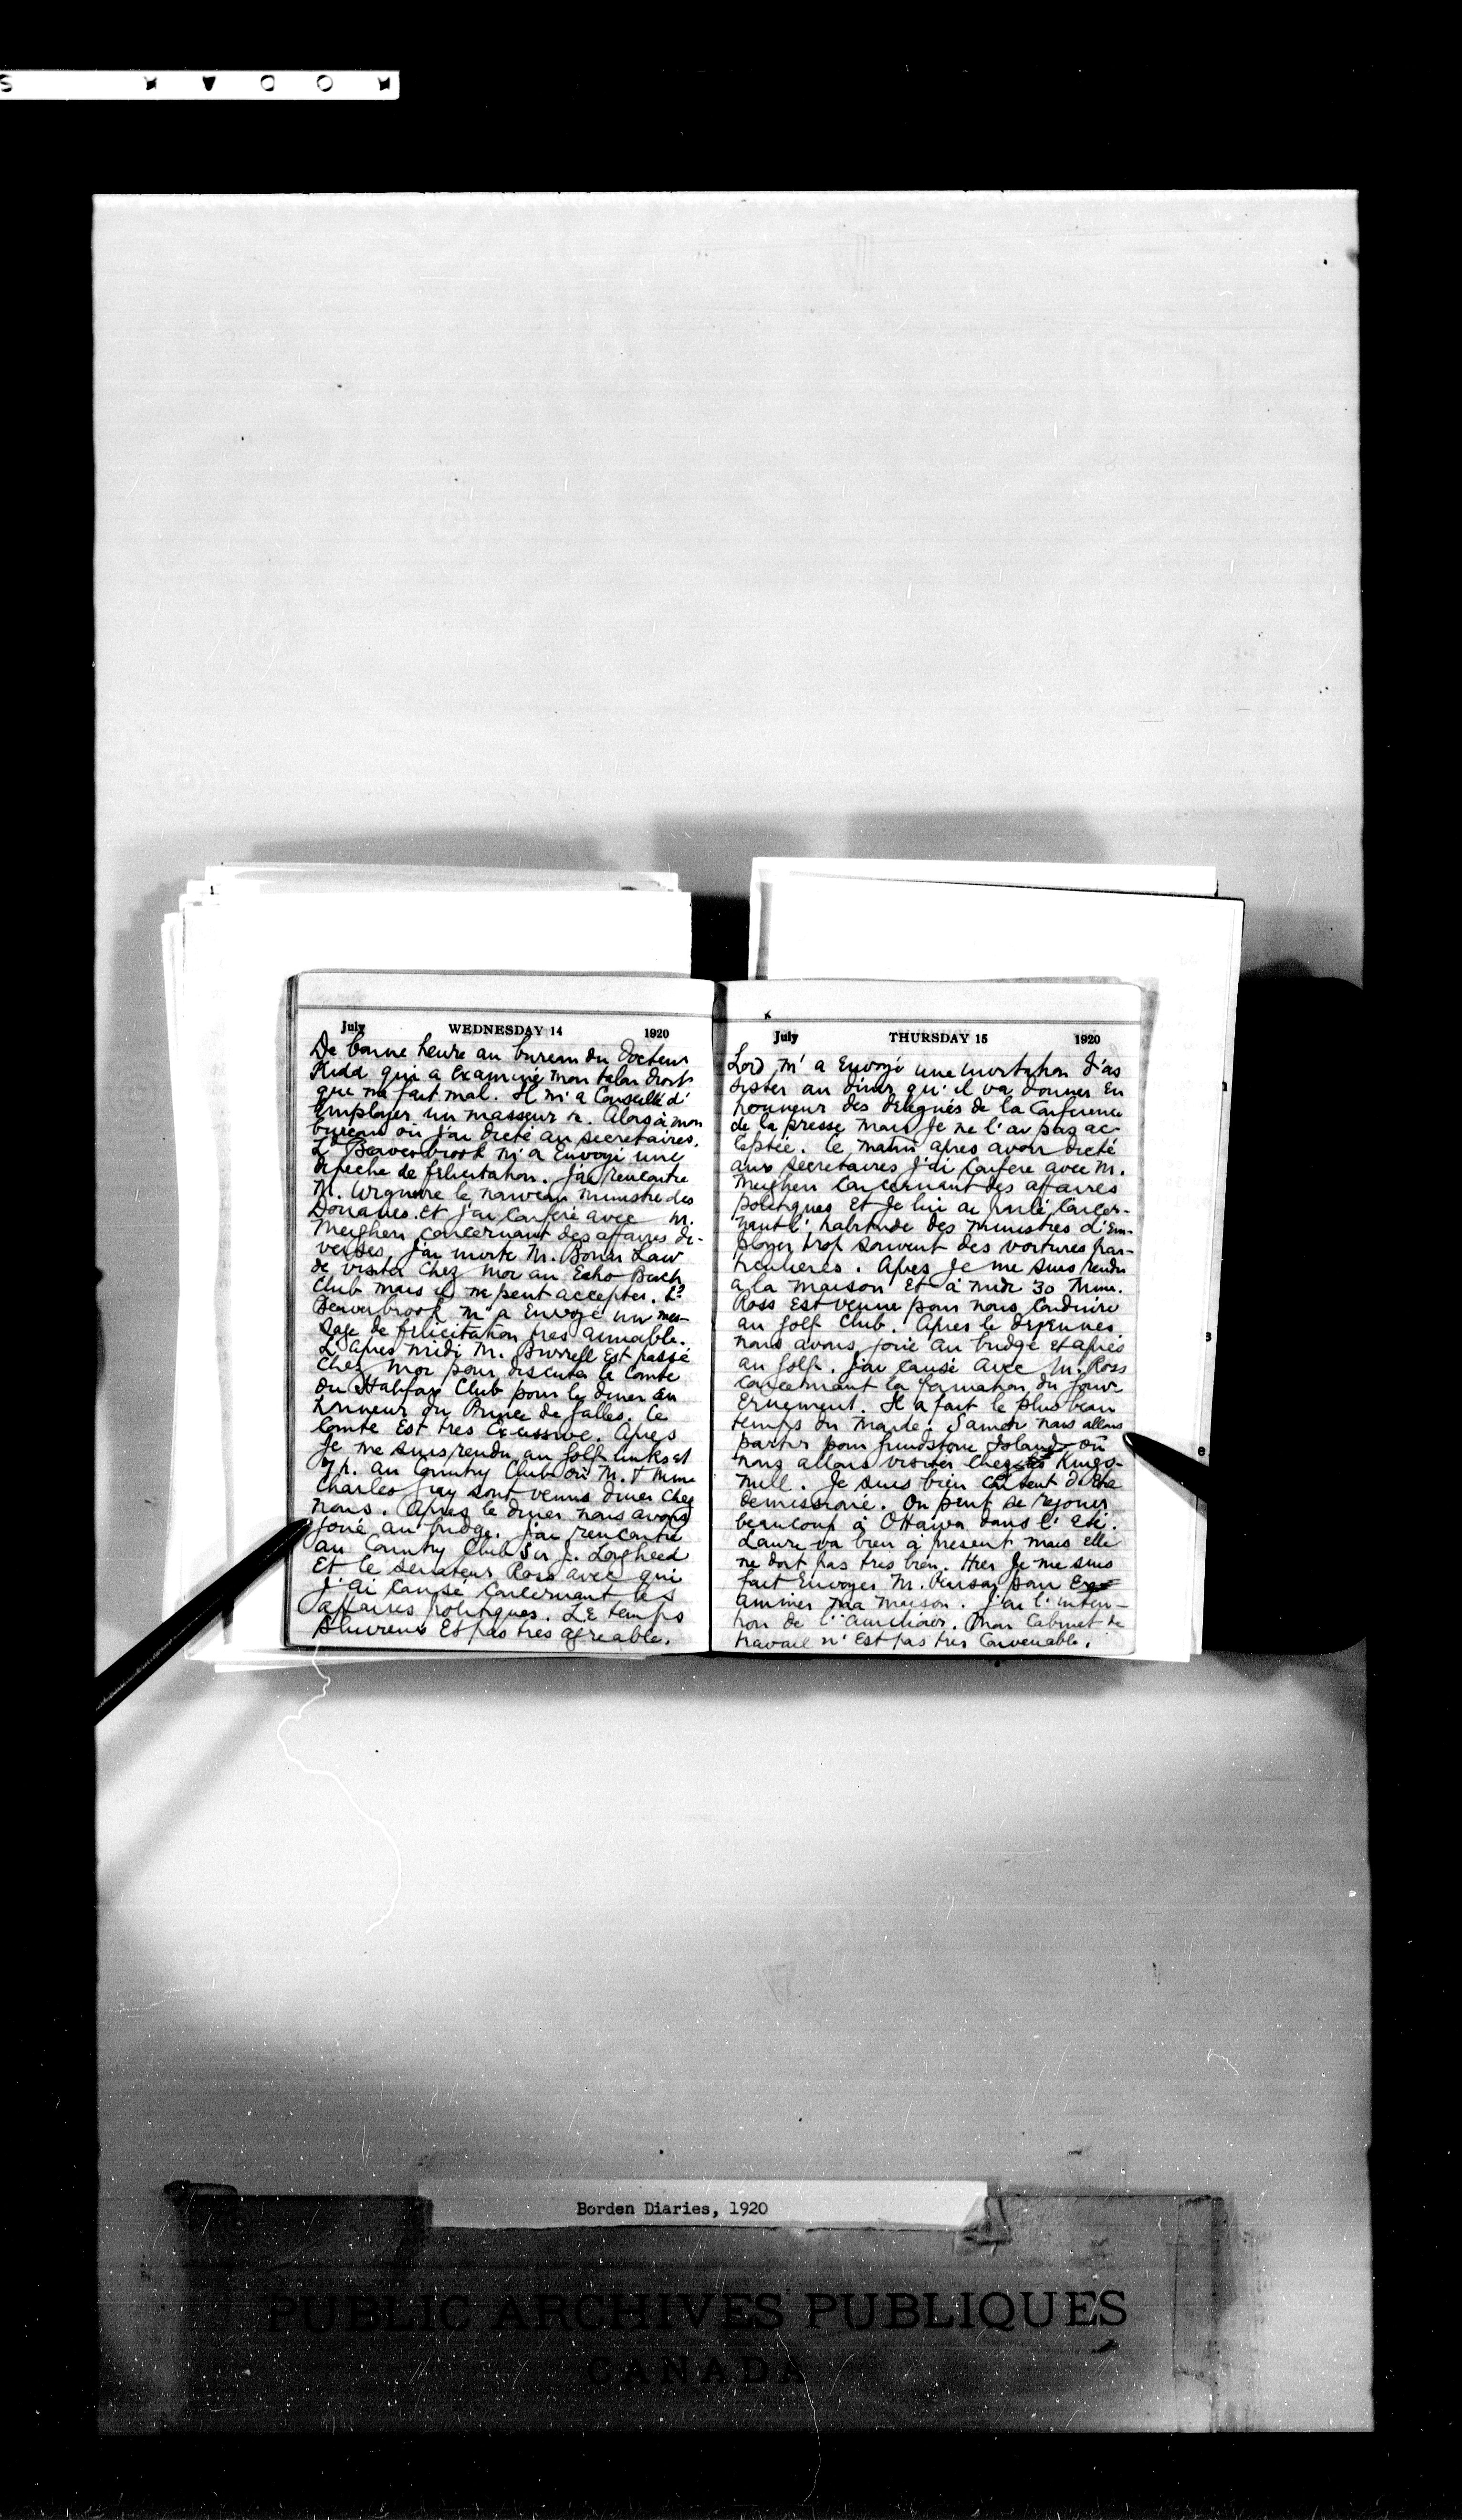 July WEDNESDAY 14 1920
De bonne heure au bureau du Docteur
Kidd qui a examiné mon talon droit
que me fait mal. Il m'a conseillé d'
employer un masseur &c. Alors à mon
bureau où j'ai dicté au secretaires.
Ld Beaverbrook m'a envoyé une
depeche de felicitation. J'ai rencontre
M. Wigmore le nouveau ministre des
Douanes. et j'ai conferé avec M.
Meighen concernant des affaires di-
verses. J'ai invité M. Bonar Law
de visiter chez moi au Echo Beach
Club mais il ne peut accepter. Ld
Beaverbrook m'a envoyé un mes-
sage de felicitation tres aimable.
L'apres midi M. Burrell est passé
chez moi pour discuter le Comte
du Halifax Club pour le diner en
honneur du Prince de Galles. Ce
Comte est tres excessive. Apres
je me suis rendu au golf links et
7 h. au Country Club où M. & Mme
Charles Gray sont venus diner chez
nous. Apres le diner nous avons
joué au bridge. J'ai rencontré
au Country Club Sir J. Lougheed
et le Senateur Ross avec qui
j'ai causé concernant les
affaires politiques. Le temps
pluvieux et pas tres agreable.
July THURSDAY 15 1920
Lord m'a envoyé une invitation d'as
sister au diner qu'il va donner en
honneur des delegués de la Conference
de la presse mais je ne l'ai pas ac
ceptée. Ce matin apres avoir dicté
aux secretaires j'ai confere avec M.
Meighen concernant des affaires
politiques et je lui ai parlé concer-
nant l'habitude des ministres d'em-
ployer trop souvent des voitures par-
ticulieres. Apres je me suis rendu
a la maison et à midi 30 Mme.
Ross est venue pour nous conduire
au Golf Club. Apres le dejeuner
nous avons joué au bridge et apres
au golf. J'ai causé avec M. Ross
concernant la formation du gouv
ernement. Il a fait le plus beau
temps du monde. Samedi nous allons
partir pour Grindstone Island où
nous allons visiter chez les Kings-
mill. Je suis bien content d'etre
demissioné. On peut se rejouir
beaucoup à Ottawa dans l'eté.
Laura va bien à present mais elle
ne dort pas tres bien. Hier je me suis
fait envoyer M. Pinson pour ex
aminer ma maison. J'ai l'inten-
tion de l'ameliorer. Mon cabinet de
travail n'est pas tres convenable.
Borden Diaries, 1920
PUBLIC ARCHIVES PUBLIQUES
CANADA